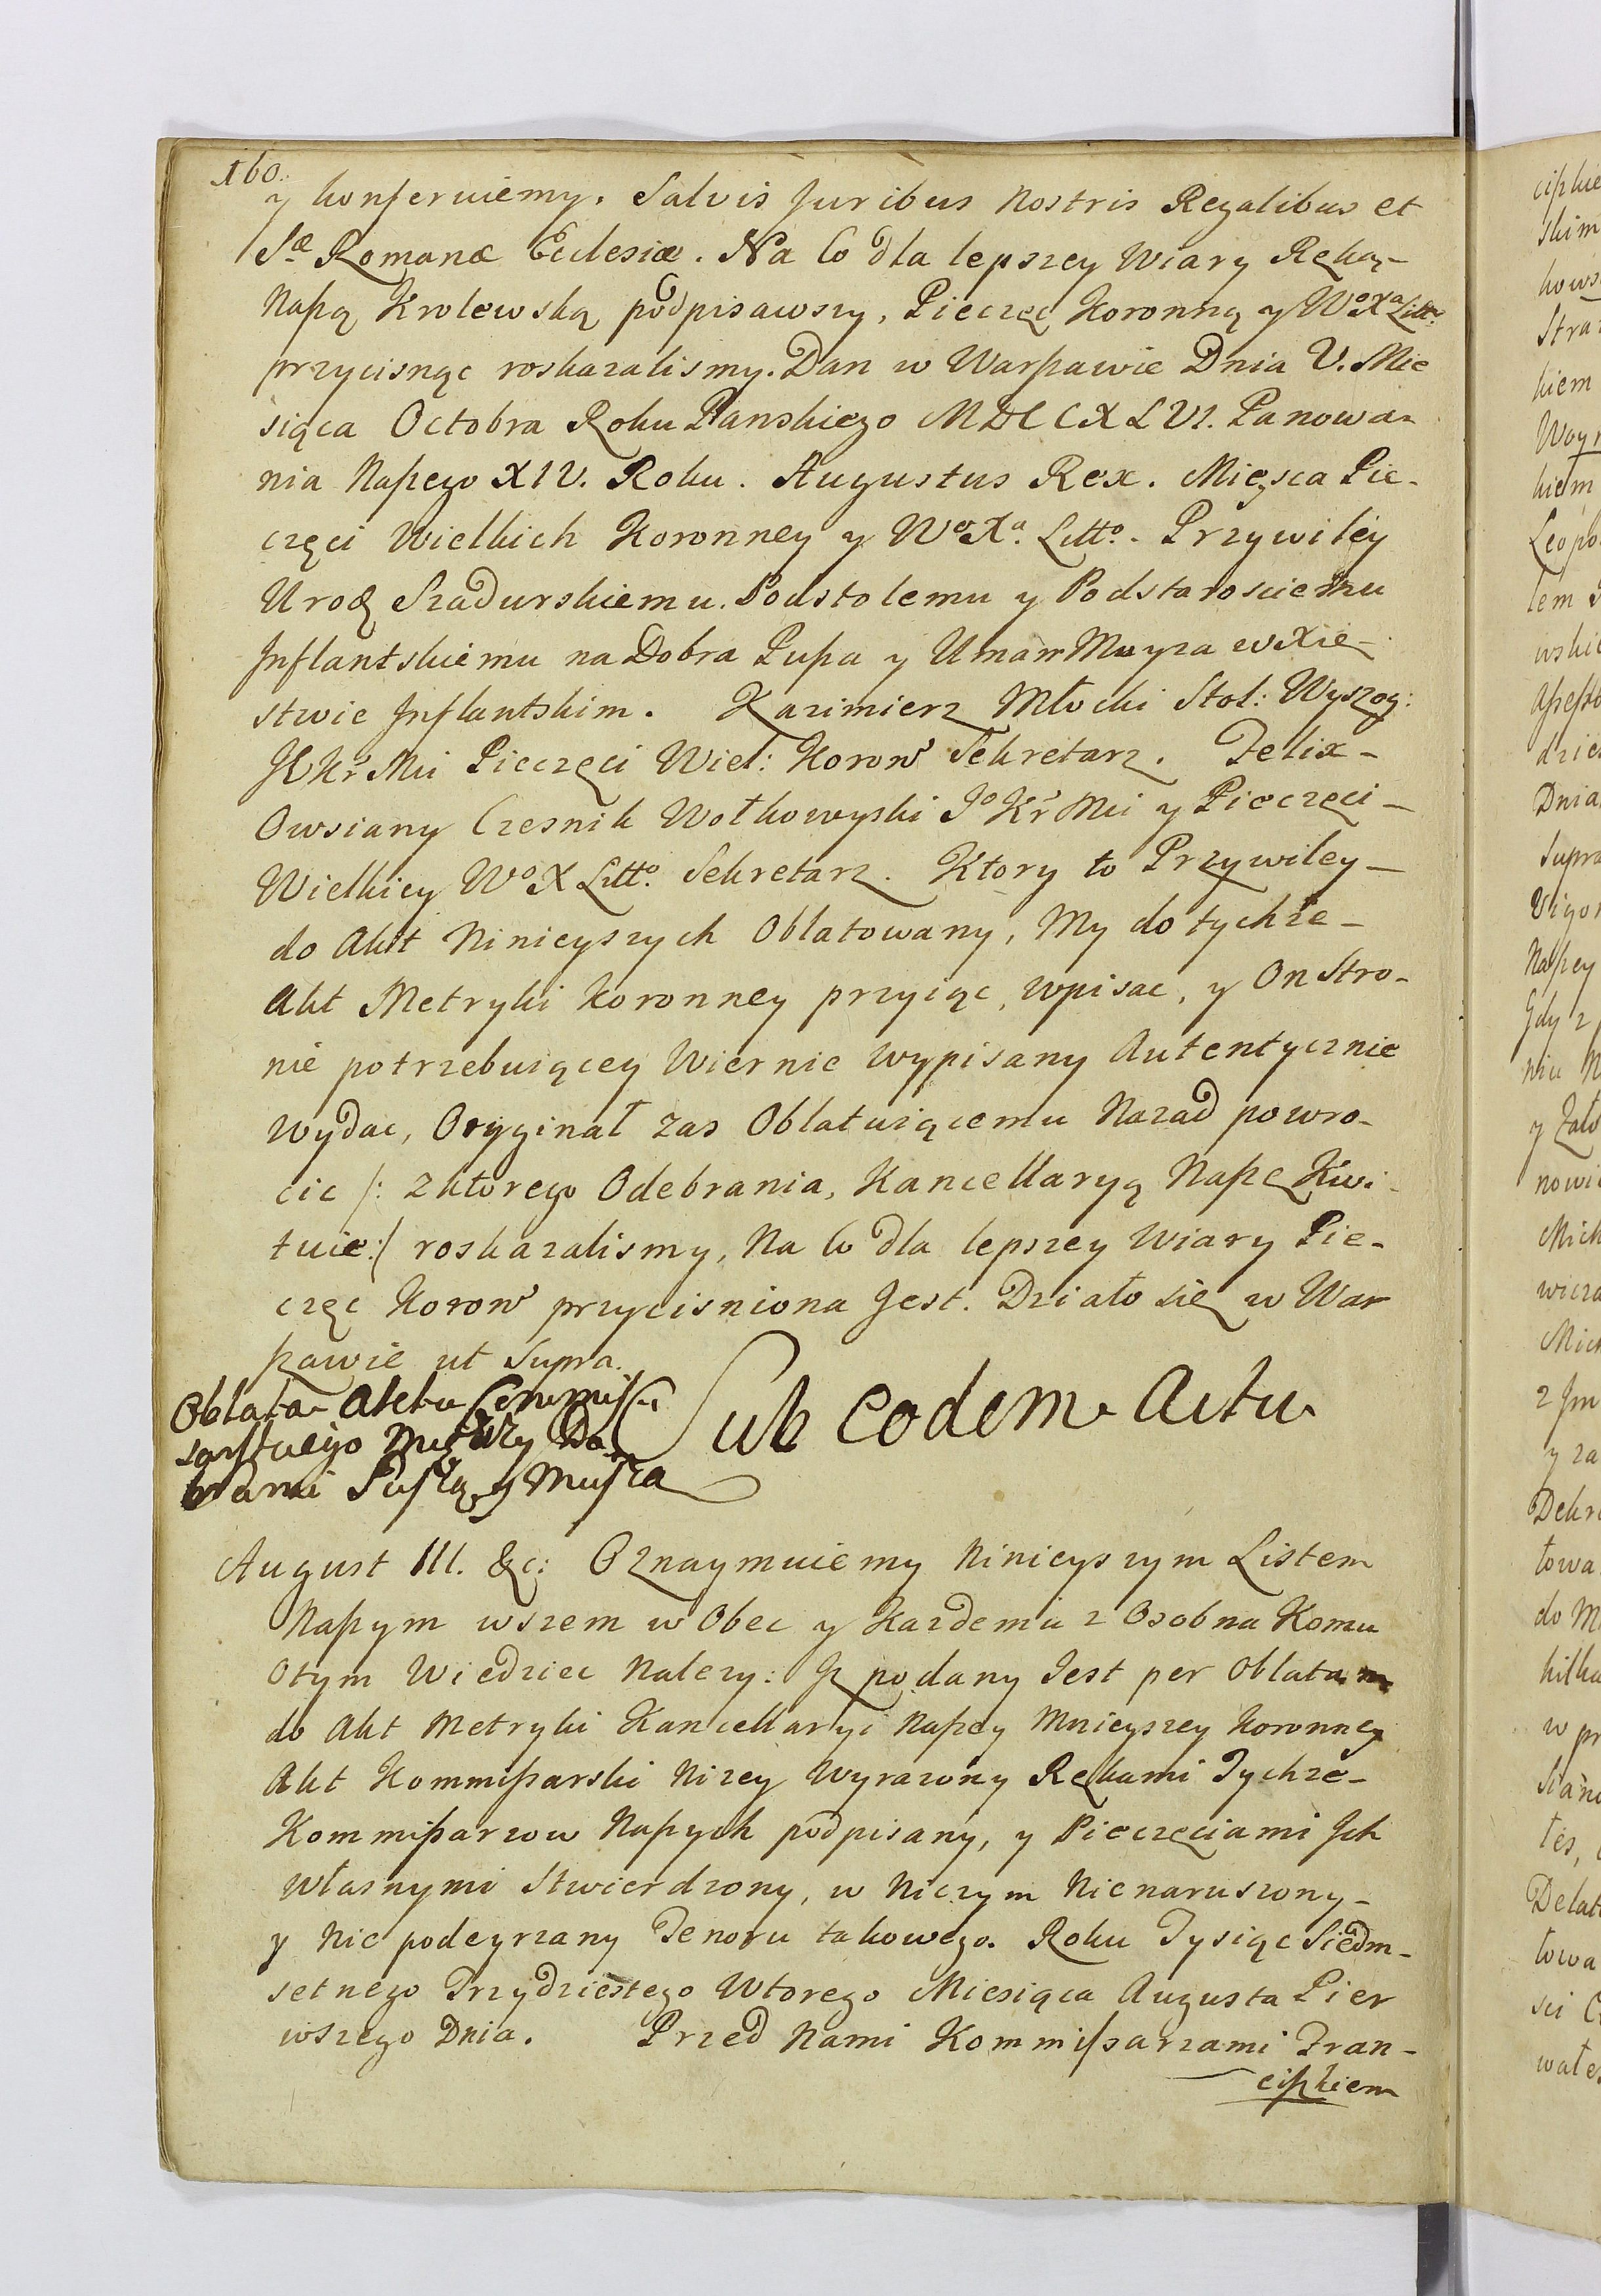 160.
y konferuiemy. Salvis Juribus Nostris Regalibus et
Sæ Romanæ Ecclesiæ. Na Co dla lepszey Wiary Ręką-
Naszą Krolewską podpisawszy, Pieczęc Koronną y Wo Xa Litto
przycisnąc roskazalismy. Dan w Warszawie Dnia V. Mie
siąca Octobra Roku Panskiego MDCCXLVI. Panowa-
nia Naszego XIV. Roku. Augustus Rex. Mieysca Pie-
częci Wielkich Koronney y Wo Xa. Litto. Przywiley
Urodz Szadurskiemu. Podstolemu y Podstaroscie mu
Inflantskiemu na Dobra Pusza y Umam Muyza w Xię-
stwie Inflantskim. Kazimierz Młocki Stol: Wyszog:
JKr Mci Pieczęci Wiel: Koron Sekretarz. Felix-
Owsiany Czesnik Wołkowyski Jo Kr Mci y Pieczęci-
Wielkiey Wo X Litto. Sekretarz. Ktory to Przywiley-
do Akt Ninieyszych Oblatowany, My do tychże-
Akt Metryki Koronney przyiąc, wpisac, y On Stro-
nie potrzebuiącey Wiernie Wypisany Autentycznie
Wydac, Oryginał zas Oblatuiącemu Nazad powro-
cic /: z ktorego Odebrania, Kancellaryą Naszę Kwi-
tuie:/ roskazalismy, Na Co dla lepszey Wiary Pie-
częc Koron przycisniona Jest. Działo się w War
szawie ut Supra.
Oblata Aktu Commis
sarskiego Między Do
brami Puszą y Muszą
Sub eodem Actu
August III. &c: Oznaymuiemy Ninieyszym Listem
Naszym wszem w Obec y Każdemu z Osobna Komu
Otym Wiedziec Nalezy: Iż podany Jest per Oblatam
do Akt Metryki Kancellaryi Naszey Mnieyszey Koronney
Akt Kommissarski Niżey Wyrażony Rękami Tychże-
Kommissarzow Naszych podpisany, y Pieczęciami Ich
Własnymi Stwierdzony, w Niczym Nienaruszony-
y Nie podeyrzany Tenoru takowego. Roku Tysiąc Siedm-
setnego Trzydziestego Wtorego Miesiąca Augusta Pier
wszego Dnia. Przed Nami Kommissarzami Fran-
ciszkiem